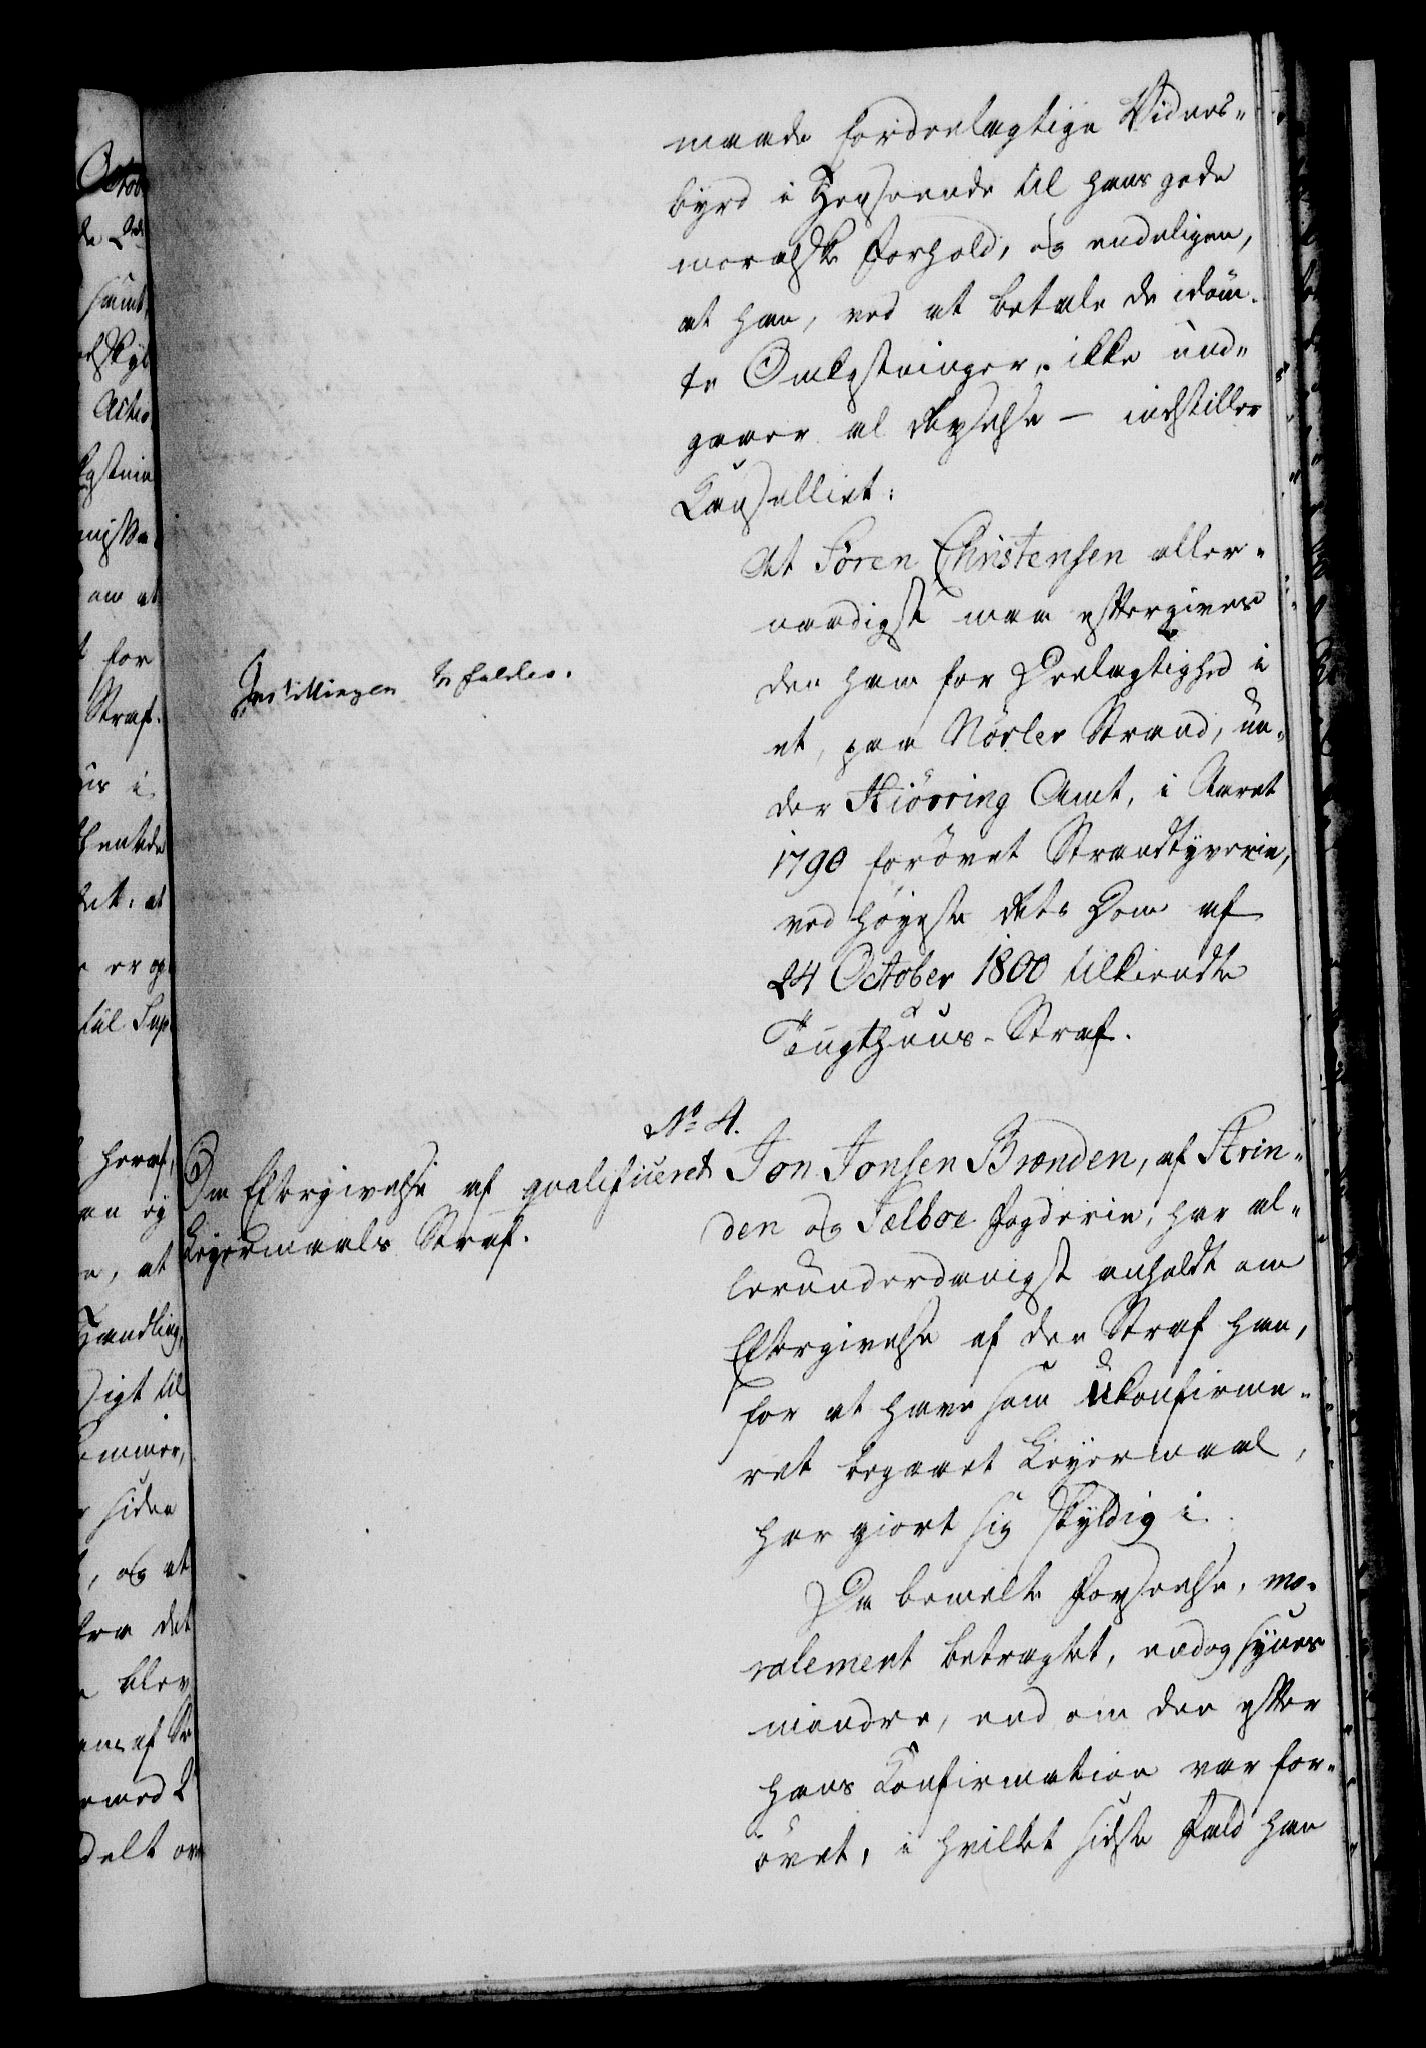 maade fordeelagtige Vidnes-
byrd i Henseende til hans gode
moralske Forhold, og endeligen,
at han, ved at betale de idöm-
te Omkostninger, ikke und-
gaaer al Avselse — indstiller
Cancelliet:
At Sören Christensen aller-
naadigst maa eftergives
den ham for Deelagtighed i
et, paa Nörlev Strand, un-
der Hiörring Amt, i Aaret
1790 forövet Strandtyverie,
ved höyeste Rets Dom af
24 October 1800 tilkiendte
Tugthuus-Straf.
Indstillingen befaldes.
No 4.
Om Eftergivelse af qvalificeret
Leyermaals Straf.
Jon Jonsen Brænden, af Strin-
den og Selboe Fogderie, har al-
lerunderdanigst anholdt om
Eftergivelse af den Straf han,
for at have som Ukonfirme-
ret begaaet Leyermaal,
har giort sig skyldig i.
Da bemelte Forseelse, mo-
ralement betragtet, endog synes
mindre, end om den efter
hans Confirmation var for-
övet, i hvilket sidste Fald han